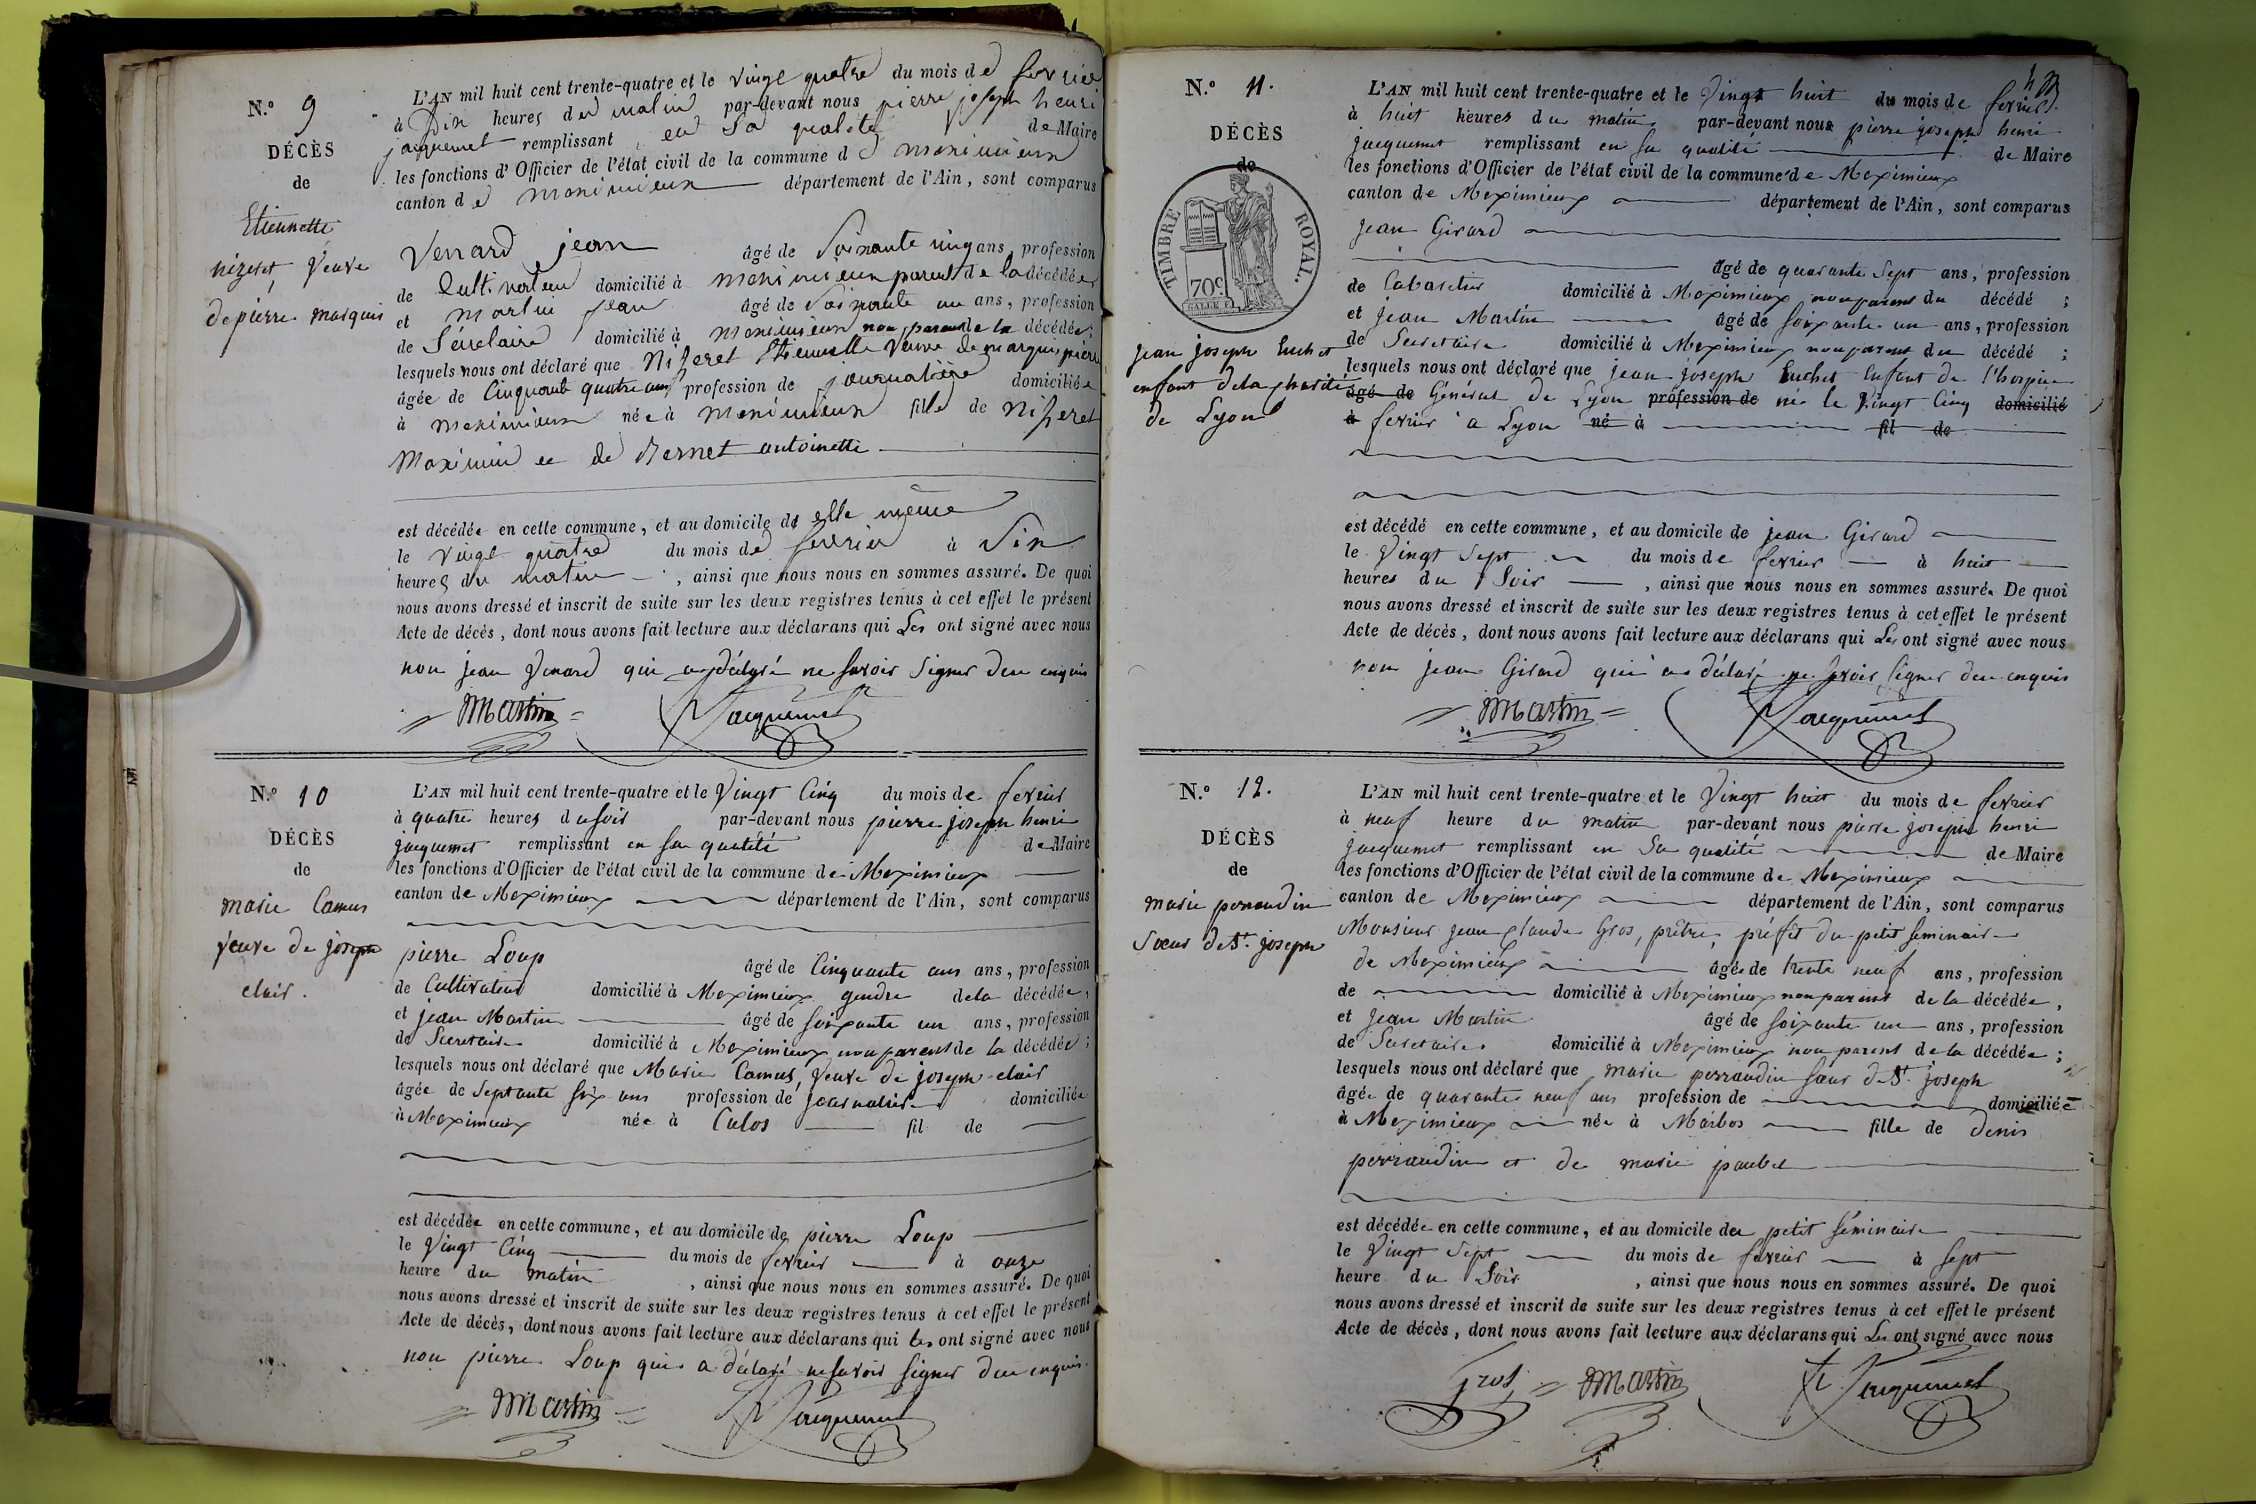 N.o 9
DÉCÈS
de
Etiennette
nizeret, Veuve
de pierre marquis
L'AN mil huit cent trente-quatre et le vingt quatre du mois de fevrier
à Dix heures du matin par-devant nous pierre joseph henri
jacquemet remplissant en sa qualité de Maire
les fonctions d'Officier de l'état civil de la commune de meximieux
canton de meximieux département de l'Ain, sont comparus
Venard jean âgé de Soixante cinq ans, profession
de Cultivateur domicilié à meximieux parent de la décédée
et martin jean âgé de Soixante un ans, profession
de Secrétaire domicilié à meximieux non parent de la décédée;
lesquels nous ont déclaré que Nizeret Etiennette Veuve de marquis pierre
âgée de Cinquante quatre ans profession de journalière domiciliée
à meximieux née à meximieux fille de Nizeret
Maximin et de Bernet antoinette
est décédée en cette commune, et au domicile de elle même
le vingt quatre du mois de fevrier à Six
heures du matin, ainsi que nous nous en sommes assuré. De quoi
nous avons dressé et inscrit de suite sur les deux registres tenus à cet effet le présent
Acte de décès, dont nous avons fait lecture aux déclarans qui Les ont signé avec nous
non jean Venard qui a déclaré ne savoir signer de ce enquis
Martin Jacquemet
N.o 10
DÉCÈS
de
marie Camus
veuve de joseph
clair.
L'AN mil huit cent trente-quatre et le Vingt Cinq du mois de fevrier
à quatre heures du soir par-devant nous pierre joseph henri
jacquemet remplissant en sa qualité de Maire
les fonctions d'Officier de l'état civil de la commune de Meximieux
canton de Meximieux département de l'Ain, sont comparus
pierre Loup âgé de Cinquante ans ans, profession
de Cultivateur domicilié à Meximieux gendre de la décédée,
et jean Martin âgé de soixante un ans, profession
de Secretaire domicilié à Meximieux non parent de la décédée;
lesquels nous ont déclaré que Marie Camus, veuve de joseph clair
âgée de Septante six ans profession de journalière domiciliée
à Meximieux née à Culos fil de
est décédée en cette commune, et au domicile de pierre Loup
le Vingt Cinq du mois de fevrier à onze
heure du matin, ainsi que nous nous en sommes assuré. De quoi
nous avons dressé et inscrit de suite sur les deux registres tenus à cet effet le présent
Acte de décès, dont nous avons fait lecture aux déclarans qui Les ont signé avec nous
non pierre Loup qui a déclaré ne savoir signer de ce enquis.
Martin Jacquemet
N.o 11.
DÉCÈS
de
TIMBRE ROYAL.
70c
jean joseph Luchet
enfant de la charité
de Lyon
L'AN mil huit cent trente-quatre et le Vingt huit du mois de fevrier
à huit heures du matin par-devant nous pierre joseph henri
jacquemet remplissant en sa qualité de Maire
les fonctions d'Officier de l'état civil de la commune de Meximieux
canton de Meximieux département de l'Ain, sont comparus
jean Girard
âgé de quarante Sept ans, profession
de Cabaretier domicilié à Meximieux non parent du décédé;
et jean Martin âgé de soixante un ans, profession
de Secretaire domicilié à Meximieux non parent du décédé;
lesquels nous ont déclaré que jean joseph Luchet Enfant de l'hospice
âgé de Général de Lyon profession de né le Vingt Cinq domicilié
à fevrier à Lyon né à fil de
est décédé en cette commune, et au domicile de jean Girard
le Vingt Sept du mois de fevrier à huit
heures du Soir, ainsi que nous nous en sommes assuré. De quoi
nous avons dressé et inscrit de suite sur les deux registres tenus à cet effet le présent
Acte de décès, dont nous avons fait lecture aux déclarans qui Les ont signé avec nous
non jean Girard qui a déclaré ne savoir signer de ce enquis
Martin Jacquemet
N.o 12.
DÉCÈS
de
marie perraudin
Sœur de St. joseph
L'AN mil huit cent trente-quatre et le Vingt huit du mois de fevrier
à neuf heure du matin par-devant nous pierre joseph henri
jacquemet remplissant en Sa qualité de Maire
les fonctions d'Officier de l'état civil de la commune de Meximieux
canton de Meximieux département de l'Ain, sont comparus
Monsieur jean claude Gros, prêtre, préfet du petit seminaire
de Meximieux âgé de trente neuf ans, profession
de domicilié à Meximieux non parent de la décédée,
et jean Martin âgé de soixante un ans, profession
de Secretaire domicilié à Meximieux non parent de la décédée;
lesquels nous ont déclaré que marie perraudin sœur de St. joseph
âgée de quarante neuf ans profession de domiciliée
à Meximieux née à Marbos fille de denis
perraudin et de marie paubel
est décédée en cette commune, et au domicile du petit séminaire
le Vingt Sept du mois de fevrier à Sept
heure du Soir, ainsi que nous nous en sommes assuré. De quoi
nous avons dressé et inscrit de suite sur les deux registres tenus à cet effet le présent
Acte de décès, dont nous avons fait lecture aux déclarans qui Les ont signé avec nous
Gros Martin Jacquemet